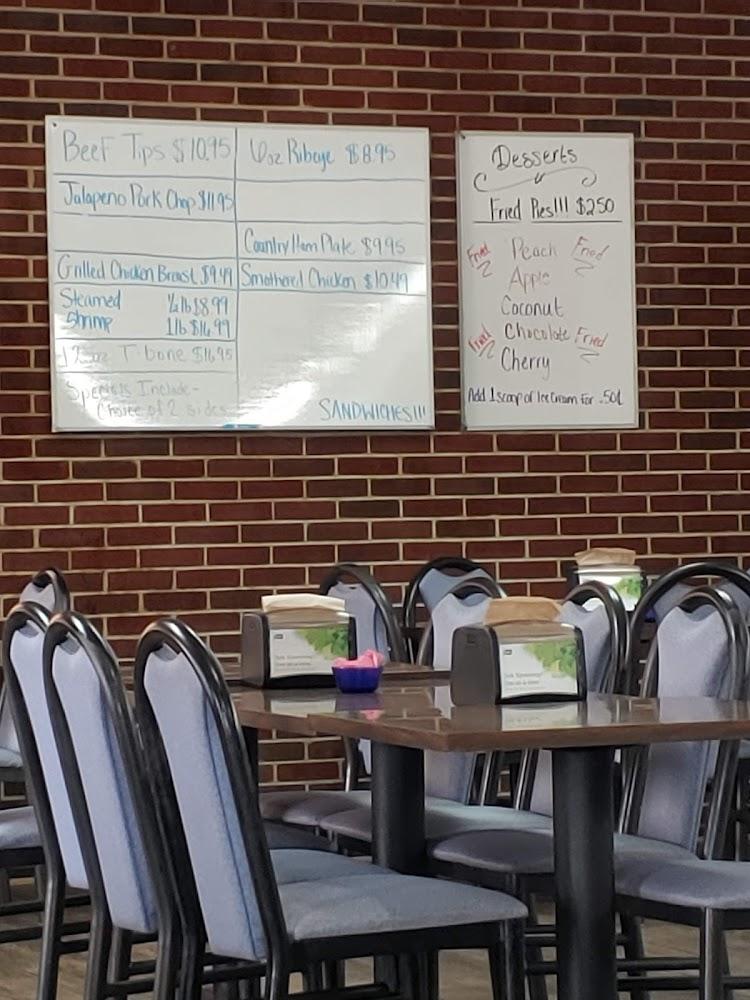 Beef Tips $10.95
Jalapeno Pork Chop $11.95
Grilled Chicken Breast $9.49
Steamed Shrimp
1/2 lb $8.99
1 lb $16.99
12oz T-bone $16.95
Specials Include-
Choice of 2 sides
6oz Ribeye $8.95
Country Ham Plate $9.95
Smothered Chicken $10.49
SANDWICHES!!!
Desserts
Fried Pies!!! $2.50
Fried Peach Fried
Apple
Coconut
Fried Chocolate Fried
Cherry
Add 1 scoop of Ice Cream for .50¢